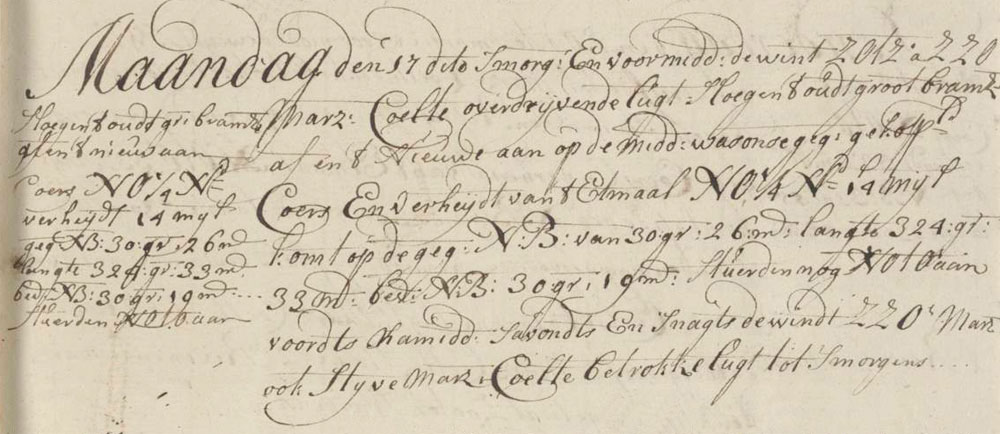 Maandag den 17 dito Smorg: En voormidd: de wint ZO12 a ZZO
Marz: Coelte overdrijvende lugt = Sloegen 8 oudt groot bramz=
af en 8 Nieuwe aan op de Midd: was onse geg: gekopp:ld
Coers En verheydt van 8 Etmaal NO¼N:d 14 mijl
komt op de geg: N:B: van 30 gr: 26: md: langte 324: gr:
33 md: best: N:B: 30 gr: 19 md: Stuerden nog NO10 aan
voordts Namidd: Savondts En Snagts de windt ZZO: Marz
ook Styve Marz: Coelte betrokke lugt tot Smorgens....
Sloegen 8 oudt gr: bramz
af en 8 nieuw aan
Coers NO¼N:d
verheydt 14 mijl
geg N:B: 30: gr: 26 md
langte 324: gr: 33 md:
best N:B: 30 gr: 19 md:....
Stuerden NO10 aan